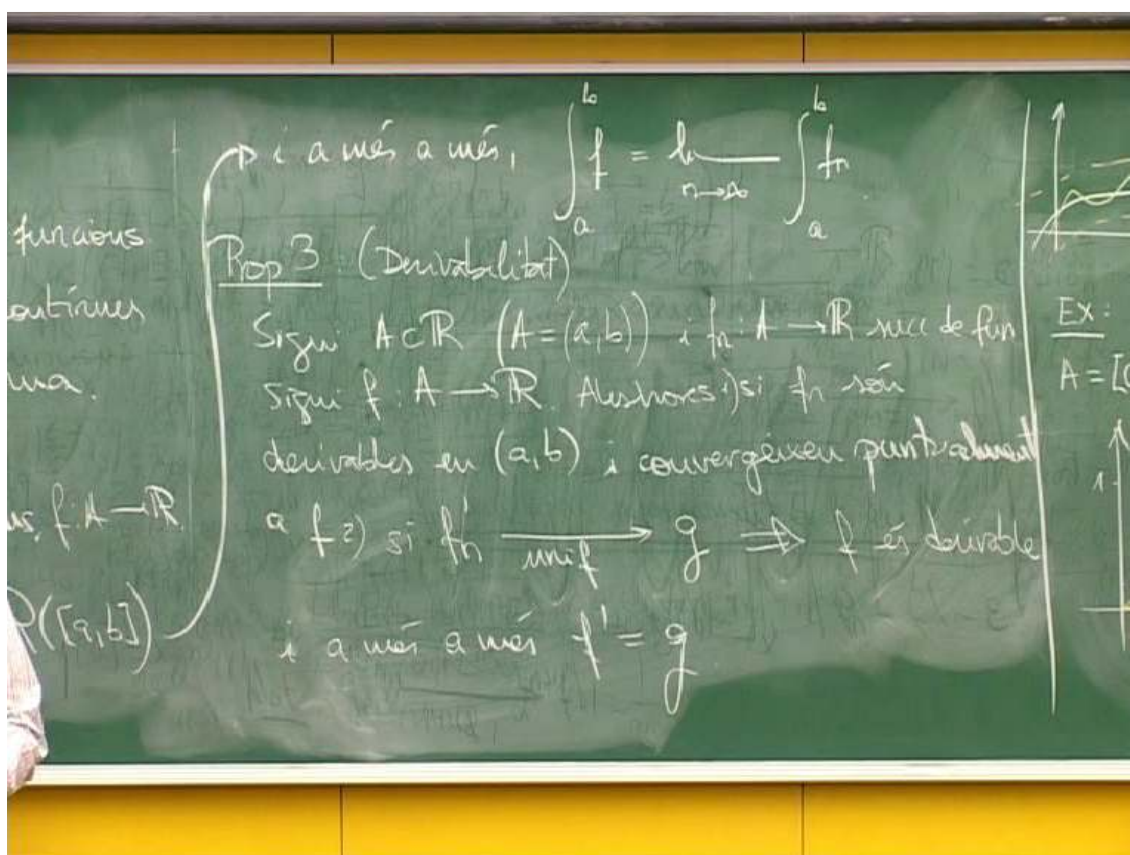 funcions
contínues
f: A → ℝ
([a,b])
i a més a més, ∫_a^b f = lim_{n→∞} ∫_a^b fn
Prop 3: (Derivabilitat)
Sigui A ⊂ ℝ (A = (a,b)) i fn: A → ℝ succ de fun
Sigui f: A → ℝ. Aleshores 1) si fn són
derivables en (a,b) i convergeixen puntualment
a f 2) si fn' →unif g ⇒ f és derivable
i a més a més f' = g
Ex:
A = [0
1